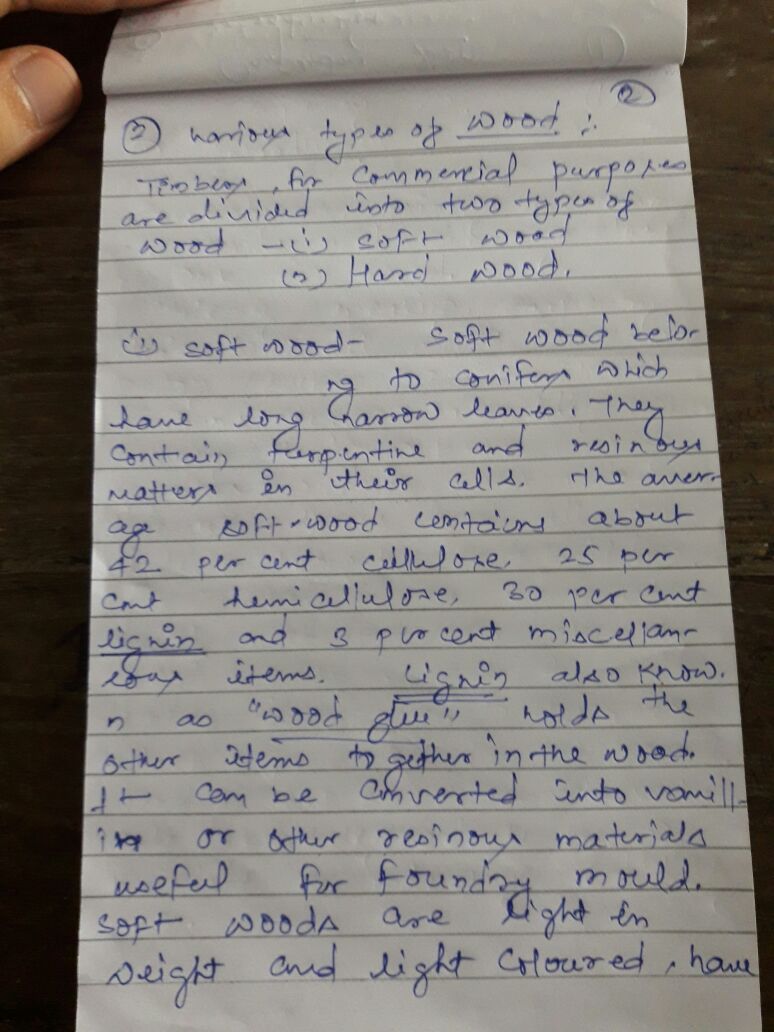 ②
② various types of wood :
Timbers, for commercial purposes
are divided into two types of
wood – (1) soft wood
(2) Hard wood.
(1) soft wood – Soft wood belon
ng to conifers which
have long narrow leaves. They
contain turpentine and resinous
matters in their cells. The aver-
age soft-wood contains about
42 per cent cellulose, 25 per
cent hemicellulose, 30 per cent
lignin and 3 per cent miscellan-
eous items. Lignin also know.
n as "wood glue" holds the
other items together in the wood.
It can be converted into vanill-
in or other resinous materials
useful for foundry mould.
Soft woods are light in
weight and light coloured, have